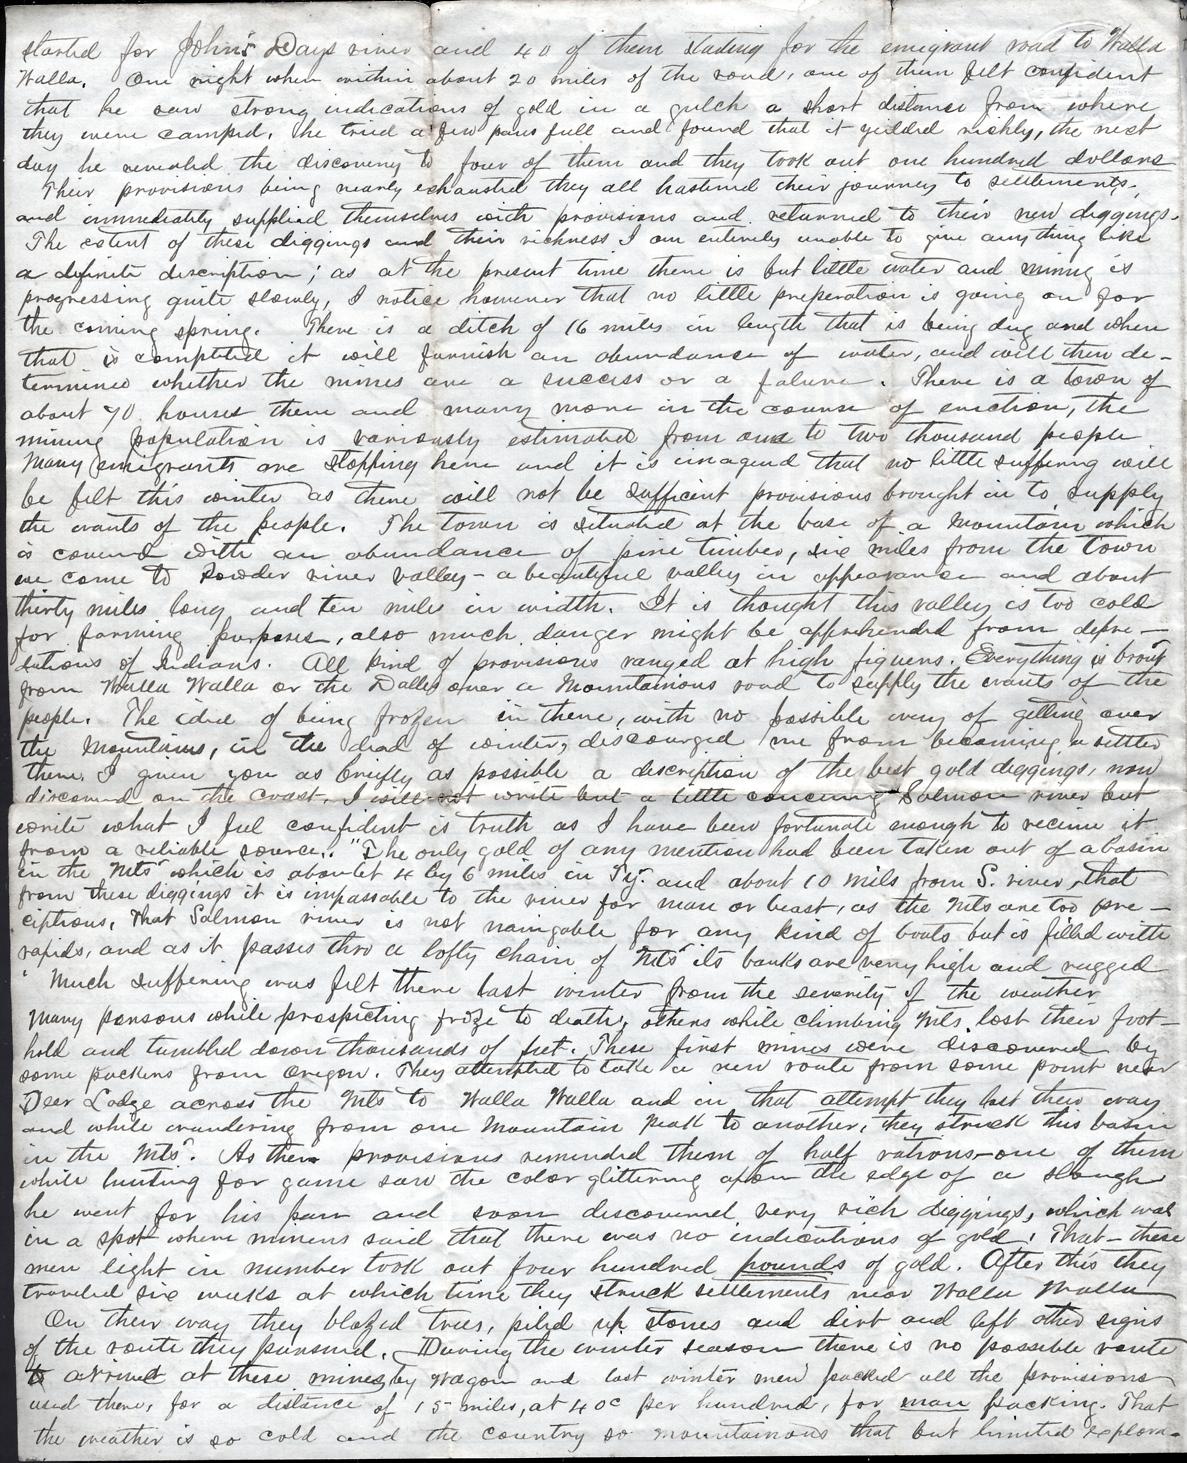 started for John's Days river and 40 of them starting for the emigrant road to Walla
Walla. One night when within about 20 miles of the road, one of them felt confident
that he saw strong indications of gold in a gulch a short distance from where
they were camped, he tried a few pans full and found that it yielded richly, the next
day he revealed the discovery to four of them and they took out one hundred dollars
Their provisions being nearly exhausted they all hastened their journey to settlements.
and immediately supplied themselves with provisions and returned to their new diggings.
The extent of these diggings and their richness I am entirely unable to give anything like
a definite discription; as at the present time there is but little water and mining is
progressing quite slowly, I notice however that no little preperation is going on for
the coming spring. There is a ditch of 16 miles in length that is being dug and when
that is completed it will furnish an abundance of water, and will then de-
termined whether the mines are a success or a falure. There is a town of
about 70 houses there and many more in the course of erection, the
mining population is variously estimated from one to two thousand people
Many emigrants are stopping here and it is imagend that no little suffering will
be felt this winter as there will not be sufficent provisions brought in to supply
the wants of the people. The town is situated at the base of a Mountain which
is covered with an abundance of pine timber, six miles from the town
we come to Powder river valley - a beautiful valley in appearance and about
thirty miles long and ten miles in width. It is thought this valley is too cold
for farming purposes, also much danger might be apprehended from depre-
dations of Indians. All kind of provisions ranged at high figuers. Everything is brot
from Walla Walla or the Dalles over a Mountainous road to supply the wants of the
people. The idea of being frozen in there, with no possible way of getting over
the Mountains, in the dead of winter, discourged me from becoming a settler
there. I given you as briefly as possible a description of the best gold diggings, now
discovered on the coast. I will not write but a little concerning Salmon river but
write what I feel confident is truth as I have been fortunate enough to receive it
from a reliable source. "The only gold of any mention had been taken out of a basin
in the Mts which is about 4 by 6 miles in and about 10 mils from S. river, that
from these diggings it is impassable to the river for man or beast, as the Mts are too pre-
cipitous, That Salmon river is not navigable for any kind of boats but is filled with
rapids, and as it passes thro a lofty chain of Mts its banks are very high and rugged
" Much suffering was felt there last winter from the severity of the weather
Many persons while prospecting froze to death, others while climbing Mts. lost their foot-
hold and tumbled down thousands of feet. These first mines were discovered by
some packers from Oregon. They attempted to take a new route from some point near
Deer Lodge across the Mts to Walla Walla and in that attempt they lost their way
and while wandering from one Mountain Peak to another, they struck this basin
in the Mts. As their provisions reminded them of half rations - one of them
while hunting for game saw the color glittering upon the edge of a slough
he went for his pan and soon discovered very rich diggings, which was
in a spot where miners said that there was no indications of gold. That - these
men eight in number took out four hundred pounds of gold. After this they
traveled six weeks at which time they struck settlements near Walla Walla
On their way they blazed trees, piled up stones and dirt and left other signs
of the route they pursued. During the winter season there is no possible route
to arrived at these mines by wagon and last winter men packed all the provisions
used there, for a distance of 15 miles, at 40c per hundred, for man packing. That
the weather is so cold and the country so mountainous that but limited explora-